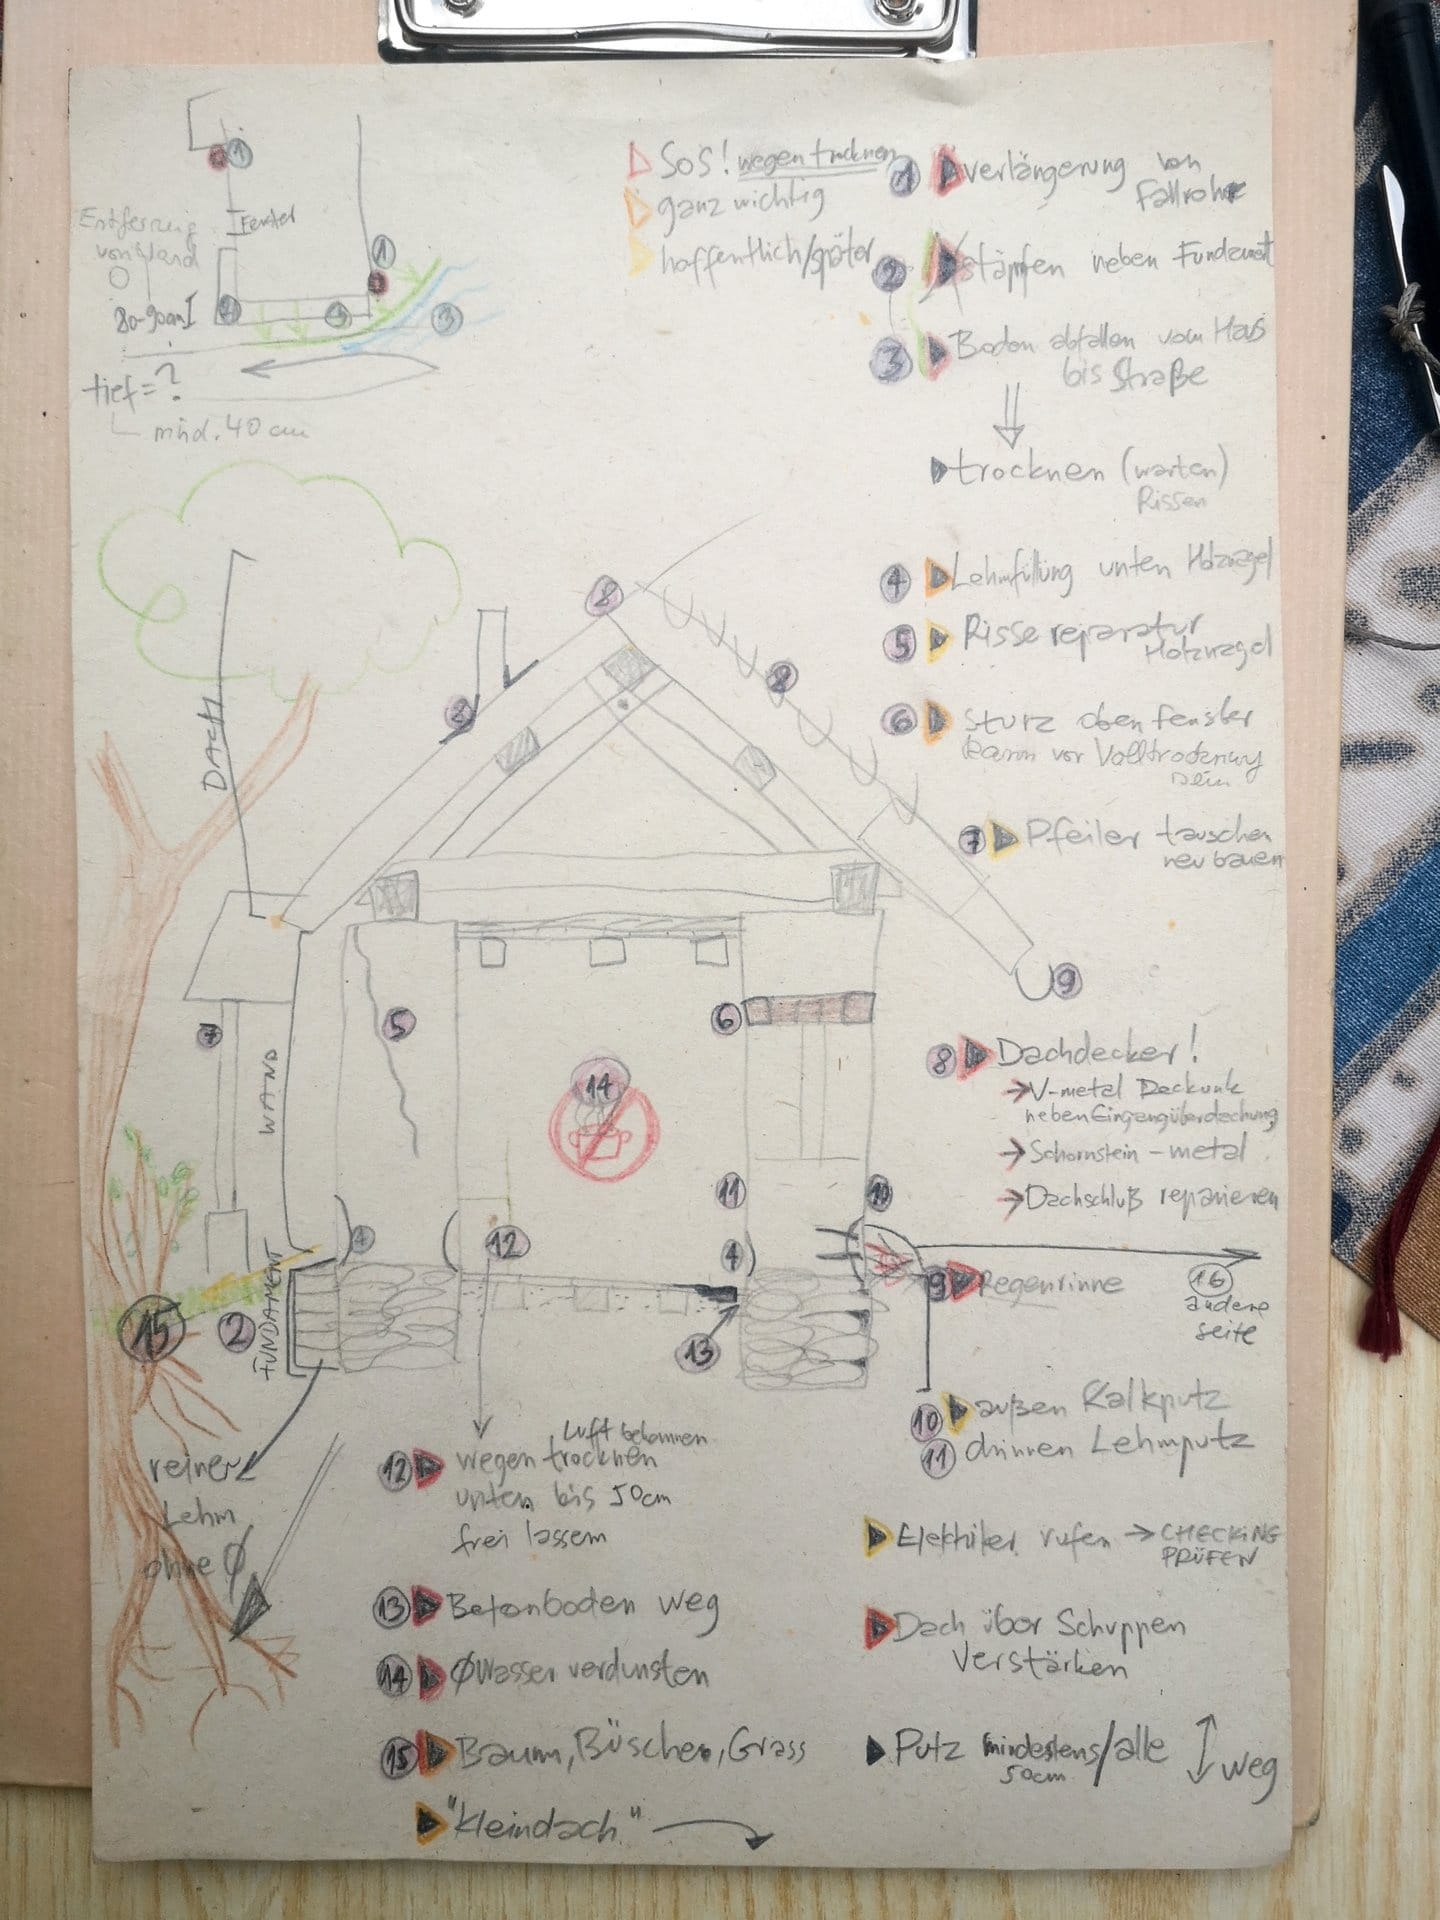 1
Fenster
Entfernung
von Wand
80-90cm
1
3
tief = ?
mind. 40 cm
SOS! wegen trocknen
ganz wichtig
hoffentlich/später
1 verlängerung von
Fallrohr
2 stäpfen neben Fundament
3 Boden abfallen vom Haus
bis Straße
trocknen (warten)
Rissen
4 Lehmfüllung unten
5 Risse reparatur
6 Sturz oben fenster
kann vor Volltrocknung
sein
7 Pfeiler tauschen
neu bauen
DACH
8
8
8
9
7
5
6
14
WAND
11
10
4
12
4
13
15
2
FUNDAMENT
8 Dachdecker!
→ V-metal Deckunk
neben Eingangüberdachung
→ Schornstein - metal
→ Dachschluß reparieren
9 Regenrinne
16
andere
seite
10 außen Kalkputz
11 drinnen Lehmputz
reiner
Lehm
ohne Ø
Luft bekommen
12 wegen trocknen
unten bis 50cm
frei lassem
13 Betonboden weg
14 ØWasser verdunsten
15 Baum, Büsche, Grass
"kleindach"
Elektriker rufen → CHECKING
PRÜFEN
Dach über Schuppen
verstärken
Putz mindestens/alle weg
50cm